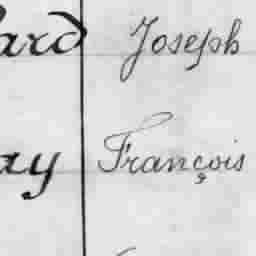 ard Joseph
ay François